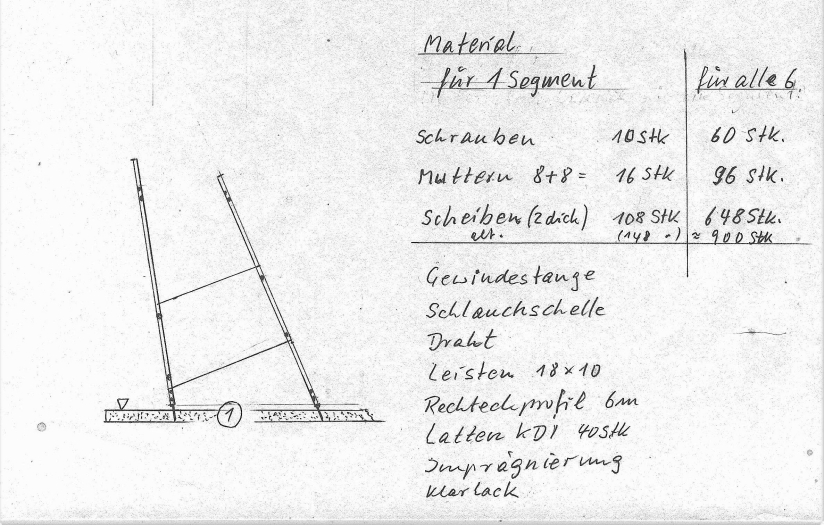 Material
für 1 Segment für alle 6
Schrauben 10 Stk 60 Stk.
Muttern 8+8 = 16 Stk 96 Stk.
Scheiben (2 dick) 108 Stk 648 Stk.
alt. (148 〃) ≈ 900 Stk
Gewindestange
Schlauchschelle
Draht
Leisten 18×10
Rechteckprofil 6m
Latten KDI 40 Stk
Imprägnierung
Klarlack
1